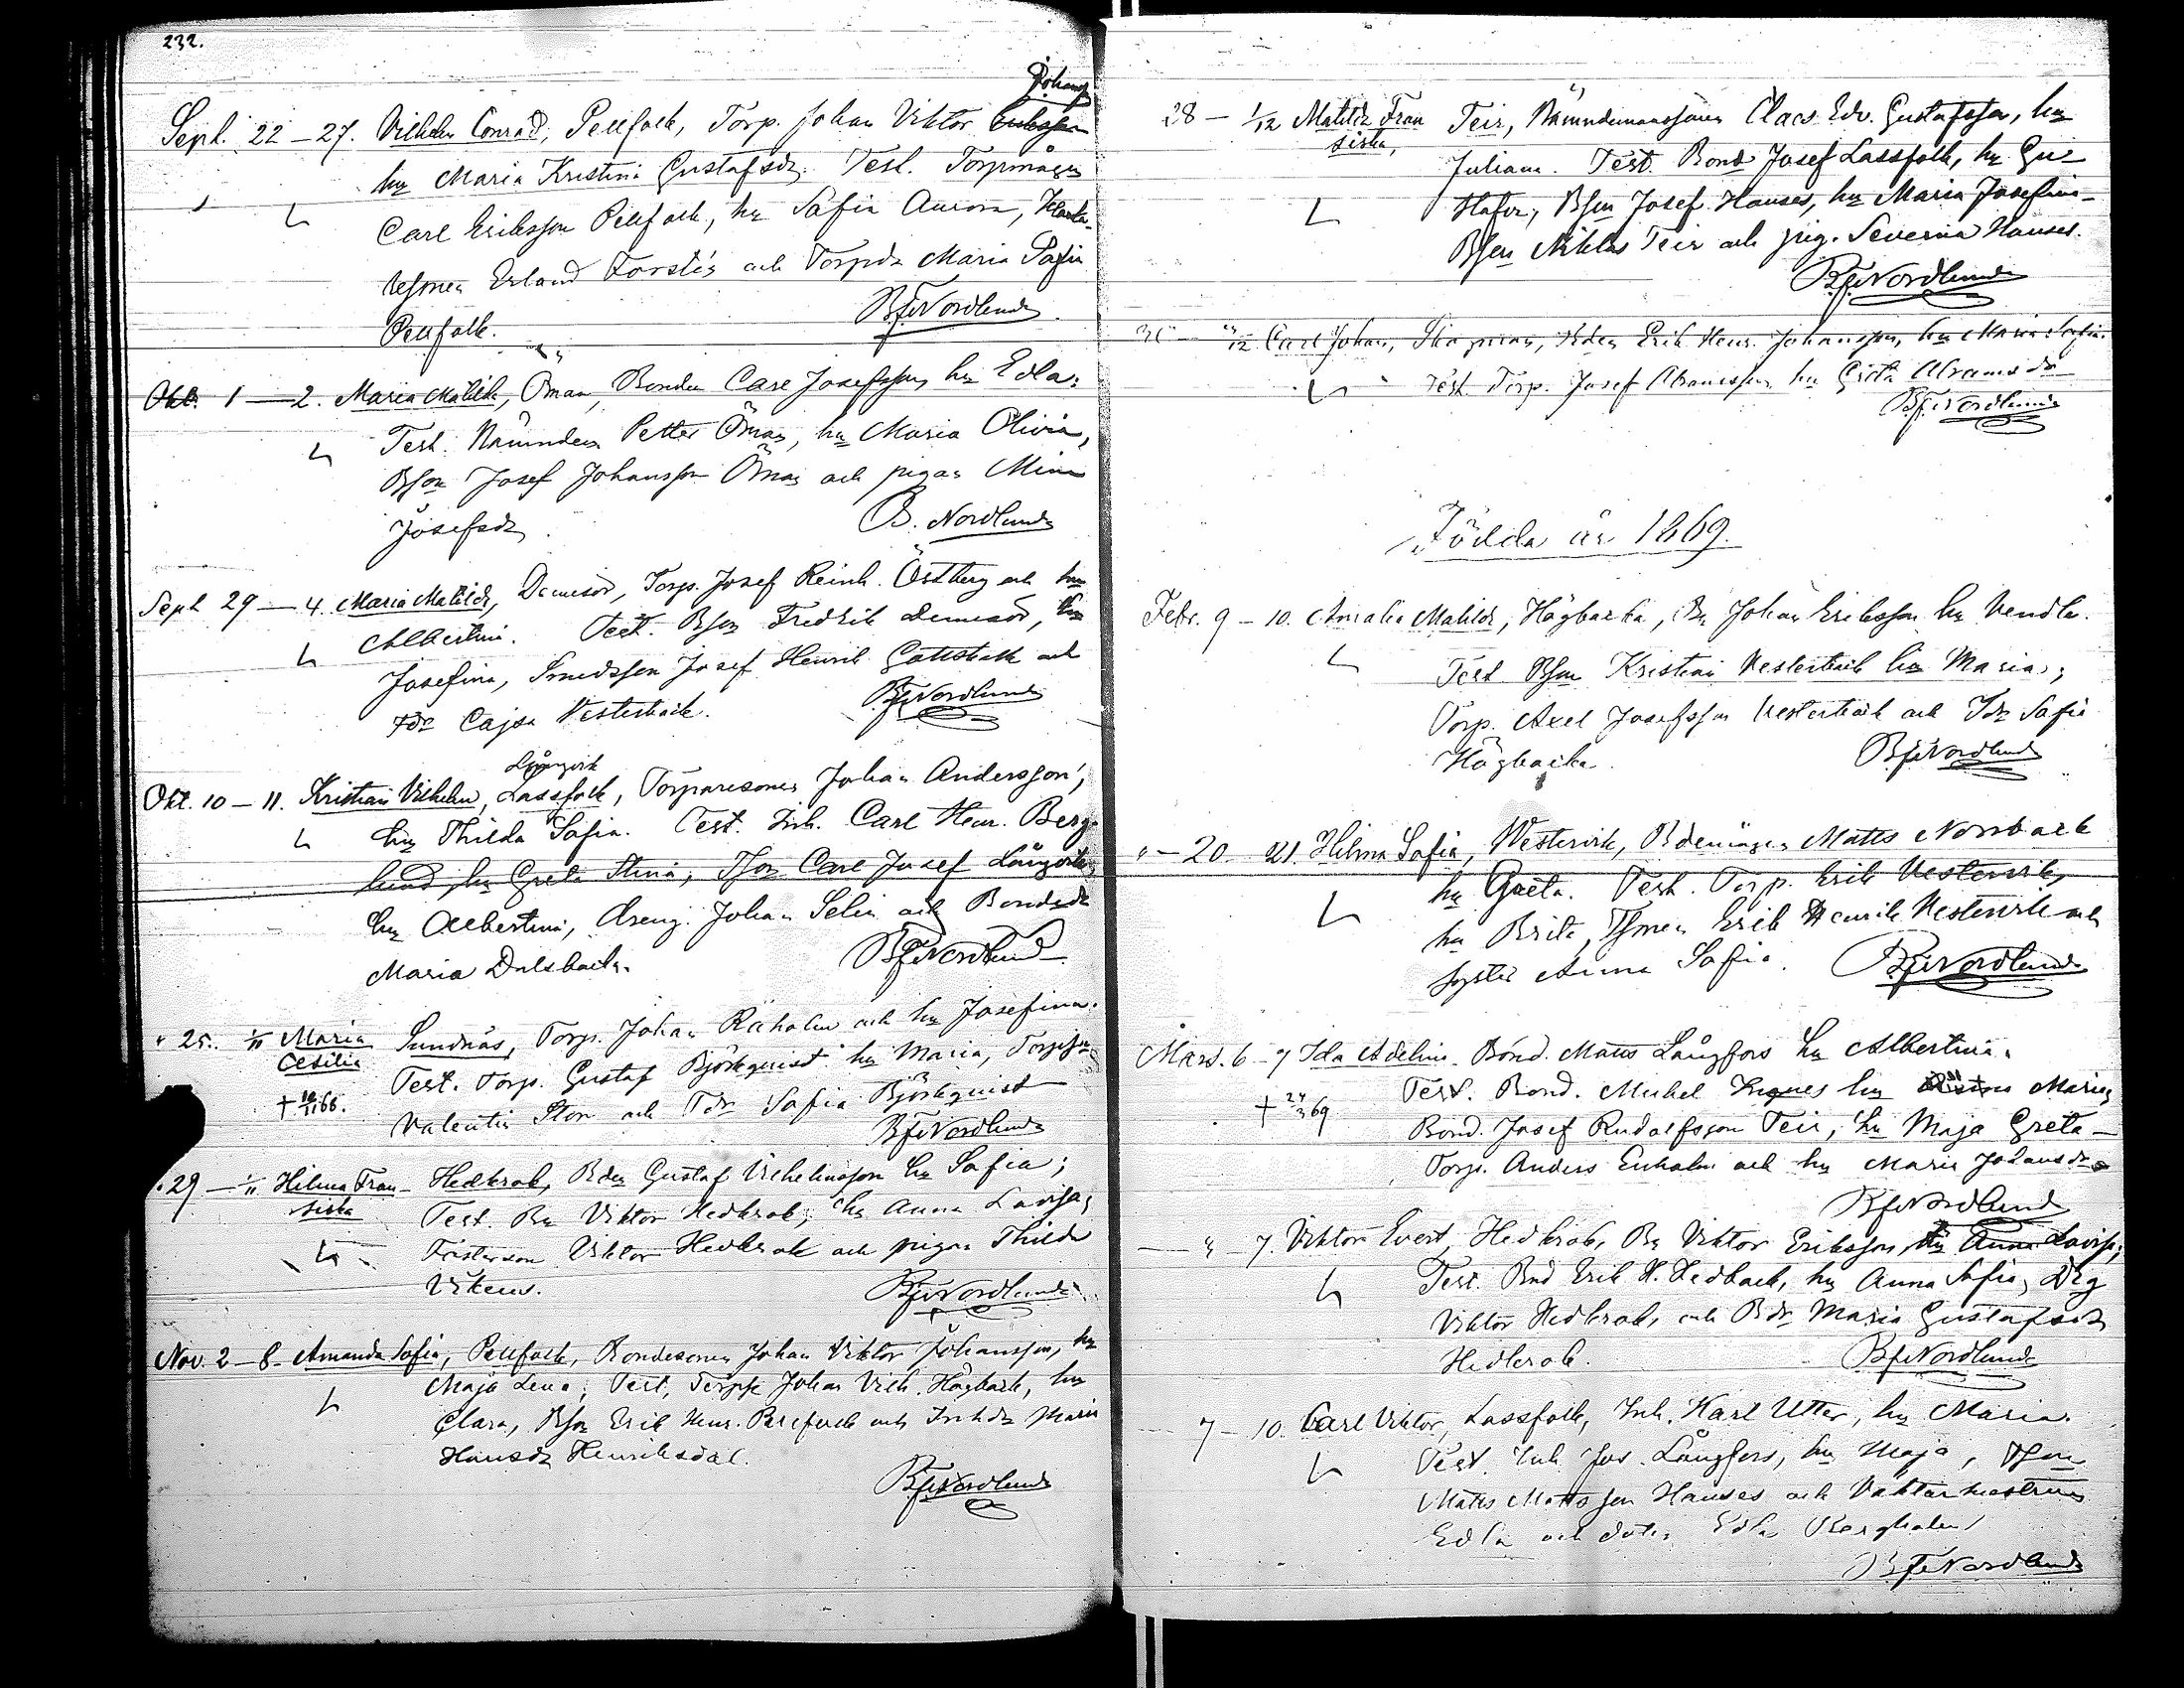 232.
Johanss
Sept. 22 – 27. Vilhelm Conrad, Pellfolk, Torp. Johan Viktor
hu Maria Kristina Gustafsdr. Test. Torpmågen
Carl Eriksson Pellfolk, hu Sofia Aurora,
Erland Forstén och Torpdr Maria Sofia
Pellfolk. BfNordlund
Okt. 1 — 2. Maria Matilda, Öman, Bonden Carl Josefsson, hu Edla.
Test. Nämndem Petter Öman, hu Maria Olivia,
Bson Josef Johansson Öman och pigan Mina
Josefsdr. B. Nordlund
Sept 29 — 4. Maria Matilda, Domisör, Torp. Josef Reinh. Östberg och hu
Albertina. Test. Bson Fredrik hu
Josefina, Smedsson Josef Henrik och
Tdr Cajsa Westerback. BfNordlund
Långvik
Okt. 10 – 11. Kristian Vilhelm, Lassfolk, Torparesonen Johan Andersson,
hu Thilda Sofia. Test. Inh. Carl Henr. Berg-
lund hu Greta Stina, Tson Carl Josef Långvik
hu Albertina, dreng. Johan Selin och Bondedr
Maria Dalsbacka. BfNordlund
" 25. 1/11 Maria Sundnäs, Torp. Johan Råholm och hu Josefina.
Cesilia Test. Torp. Gustaf Björkqvist hu Maria, Torpson
† 10/11 68. Valentin Stor och Tdr Sofia Björkqvist
BfNordlund
" 29 — 1/11 Hilma Fran- Hedkrok, Bden Gustaf Vilhelmsson hu Sofia;
siska Test. Bn Viktor Hedkrok, hu Anna Lovisa,
Fosterson Viktor Hedkrok och pigan Thilda
BfNordlund
Nov. 2 – 8. Amanda Sofia, Pellfolk, Bondesonen Johan Viktor Johansson, hu
Maja Lena; Test, Johan Vilh. Högback, hu
Clara, Bson Erik Henr. Pellfolk och Inhdr Maria
Hansdr Henriksdal.
BfNordlund
28 — 1/12 Matilda Fran Teir, Nämndemanssonen Claes Edv. Gustafsson, hu
siska, Juliana. Test. Bond Josef Lassfolk, hu Gus-
tafva, Bson Josef Hanses, hu Maria Josefina
Bson Niklas Teir och pig. Severina Hanses.
BfNordlund
Carl Johan, Skogman, Bden Erik Henr. Johansson, hu Maria Sofia.
Test Torp. Josef Abramsson hu Greta Abramsdr
BfNordlund
Födda år 1869.
Febr. 9 – 10. Amalia Matilda, Högbacka, Bn Johan Eriksson hu Vendla.
Test Bson Kristian Westerback hu Maria;
Torp. Axel Josefsson Westerback och Tdr Sofia
Högbacka. BfNordlund
" – 20. 21. Hilma Sofia, Westervik, Bdemågen Matts Norrback
hu Greta. Test. Torp. Erik Westervik,
hu Brita, Tsonen Erik Henrik Westervik och
syster Anna Sofia. BfNordlund
Mars. 6 – 7 Ida Adelina. Bond. Matts Långfors hu Albertina.
Test. Bond. Mickel Ingves hu Maria,
† 24/3 69 Bond. Josef Rudolfsson Teir, hu Maja Greta
Torp. Anders Enholm och hu Maria Johansdr
BfNordlund
— " 7. Viktor Evert, Hedkrok, Bn Viktor Eriksson, hu Anna Lovisa;
Test. Bnd Erik H. Hedback, hu Anna Sofia, Drg
Viktor Hedkrok, och Bdr Maria Gustafsdr
Hedkrok. BfNordlund
7 – 10. Carl Viktor, Lassfolk, Inh. Karl Utter, hu Maria.
Test. Inh. Jos. Långfors, hu Maja, Tson
Matts Mattsson Hanses och Vaktarhustrun
Edla och dotn Edla Bergholm
BfNordlund